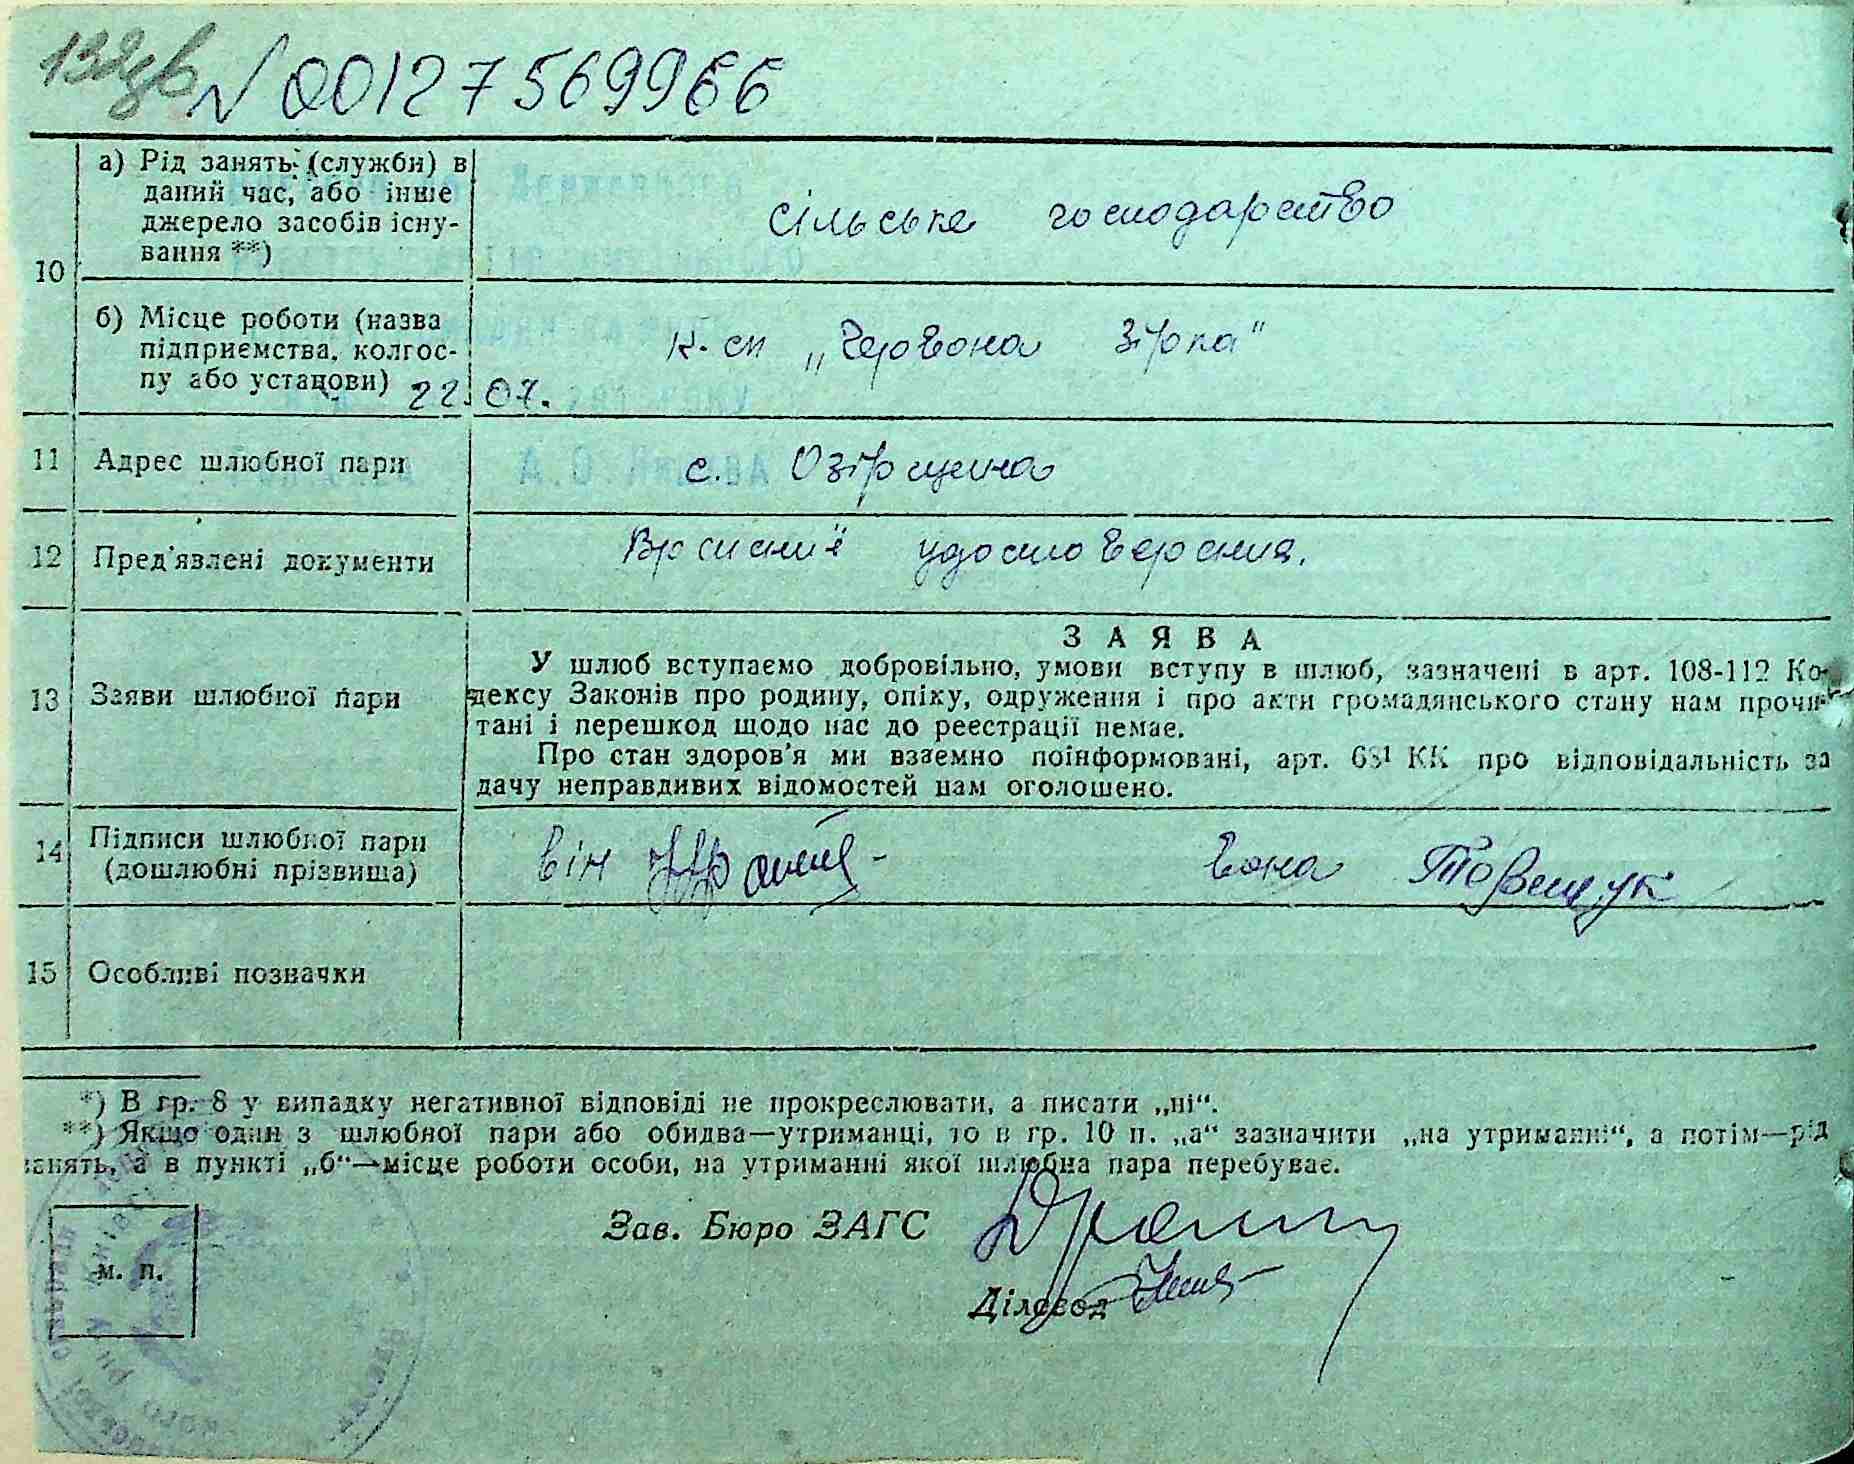 N 00127569966
10
а) Рід занять (служби) в
даний час, або інше
джерело засобів існу-
вання **)
сільське господарство
б) Місце роботи (назва
підприємства, колгос-
пу або установи) 22.07.
К-сп „Червона Зірка"
11 Адрес шлюбної пари
с. Озірщина
12 Пред'явлені документи
13 Заяви шлюбної пари
ЗАЯВА
У шлюб вступаємо добровільно, умови вступу в шлюб, зазначені в арт. 108-112 Ко-
дексу Законів про родину, опіку, одруження і про акти громадянського стану нам прочи-
тані і перешкод щодо нас до реєстрації немає.
Про стан здоров'я ми взаємно поінформовані, арт. 68¹ КК про відповідальність за
дачу неправдивих відомостей нам оголошено.
14 Підписи шлюбної пари
(дошлюбні прізвища)
він
вона Товщук
15 Особливі позначки
*) В гр. 8 у випадку негативної відповіді не прокреслювати, а писати „ні".
**) Якщо один з шлюбної пари або обидва—утриманці, то в гр. 10 п. „а" зазначити „на утриманні", а потім—рід
занять, а в пункті „б"—місце роботи особи, на утриманні якої шлюбна пара перебуває.
м. п.
Зав. Бюро ЗАГС
Діловод